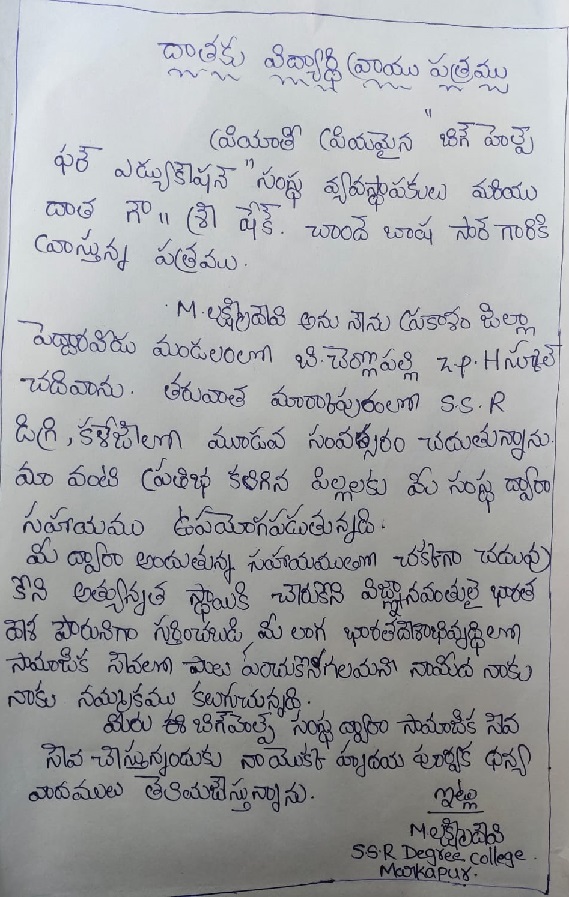 దాతకు విద్యార్థి వ్రాయు పత్రము
ప్రియాతి ప్రియమైన "బిగ్ హెల్ప్
ఫర్ ఎడ్యుకేషన్" సంస్థ వ్యవస్థాపకులు మరియు
దాత గౌ॥ శ్రీ షేక్. చాంద్ బాష సార్ గారికి
వ్రాస్తున్న పత్రము.
M. లక్ష్మీదేవి అను నేను ప్రకాశం జిల్లా
పెద్దారవీడు మండలంలో బి.చెర్లోపల్లి Z.P.H స్కూల్
చదివాను. తరువాత మార్కాపురంలో S.S.R
డిగ్రి, కళేజిలో మూడవ సంవత్సరం చదుతున్నాను.
మా వంటి ప్రతిభ కలిగిన పిల్లలకు మీ సంస్థ ద్వారా
సహాయము ఉపయోగపడుతున్నది.
మీ ద్వారా అందుతున్న సహాయముతో చక్కగా చదువు
కొని అత్యున్నత స్థాయికి చేరుకొని విజ్ఞానవంతులై భారత
దేశ పౌరునిగా గుర్తించబడి మీ లాగ భారతదేశాభివృద్ధిలో
సామాజిక సేవలో పాలు పంచుకొనగలమని నామీద నాకు
నాకు నమ్మకము కలుగుచున్నది.
మీరు ఈ బిగ్ హెల్ప్ సంస్థ ద్వారా సామాజిక సేవ
సేవ చేస్తున్నందుకు నా యొక్క హృదయ పూర్వక ధన్య
వాదములు తెలియజేస్తున్నాను.
ఇట్లు
M లక్ష్మీదేవి
S.S.R Degree College.
Markapur.